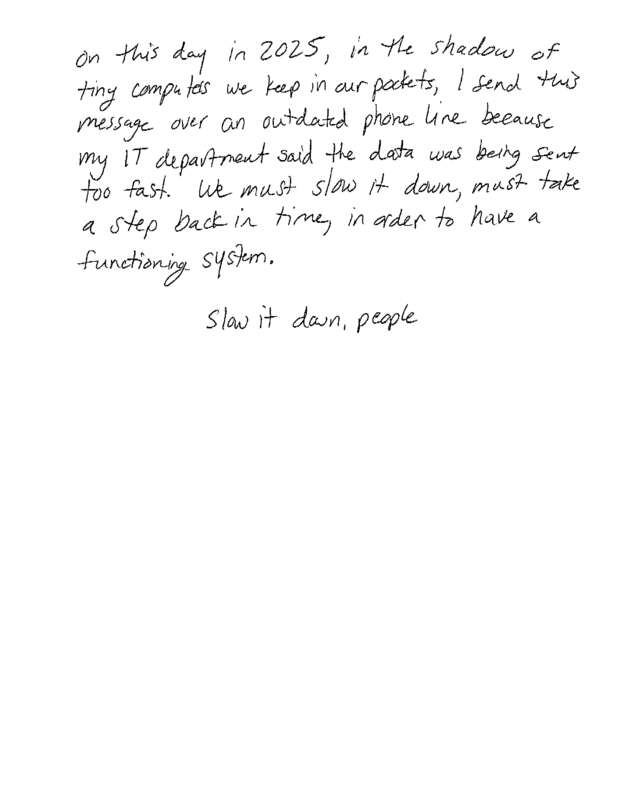 On this day in 2025, in the shadow of
tiny computers we keep in our pockets, I send this
message over an outdated phone line because
my IT department said the data was being sent
too fast. We must slow it down, must take
a step back in time, in order to have a
functioning system.
Slow it down, people